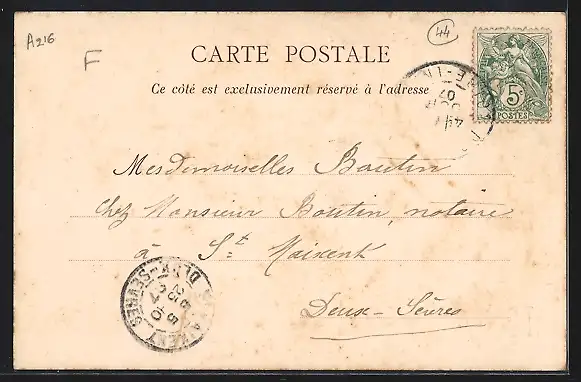 A216
F
44
CARTE POSTALE
Ce côté est exclusivement réservé à l'adresse
5c
POSTES
Mesdemoiselles Boutin
chez Monsieur Boutin, notaire
à St Maixent
Deux-Sèvres
DEUX-SÈVRES